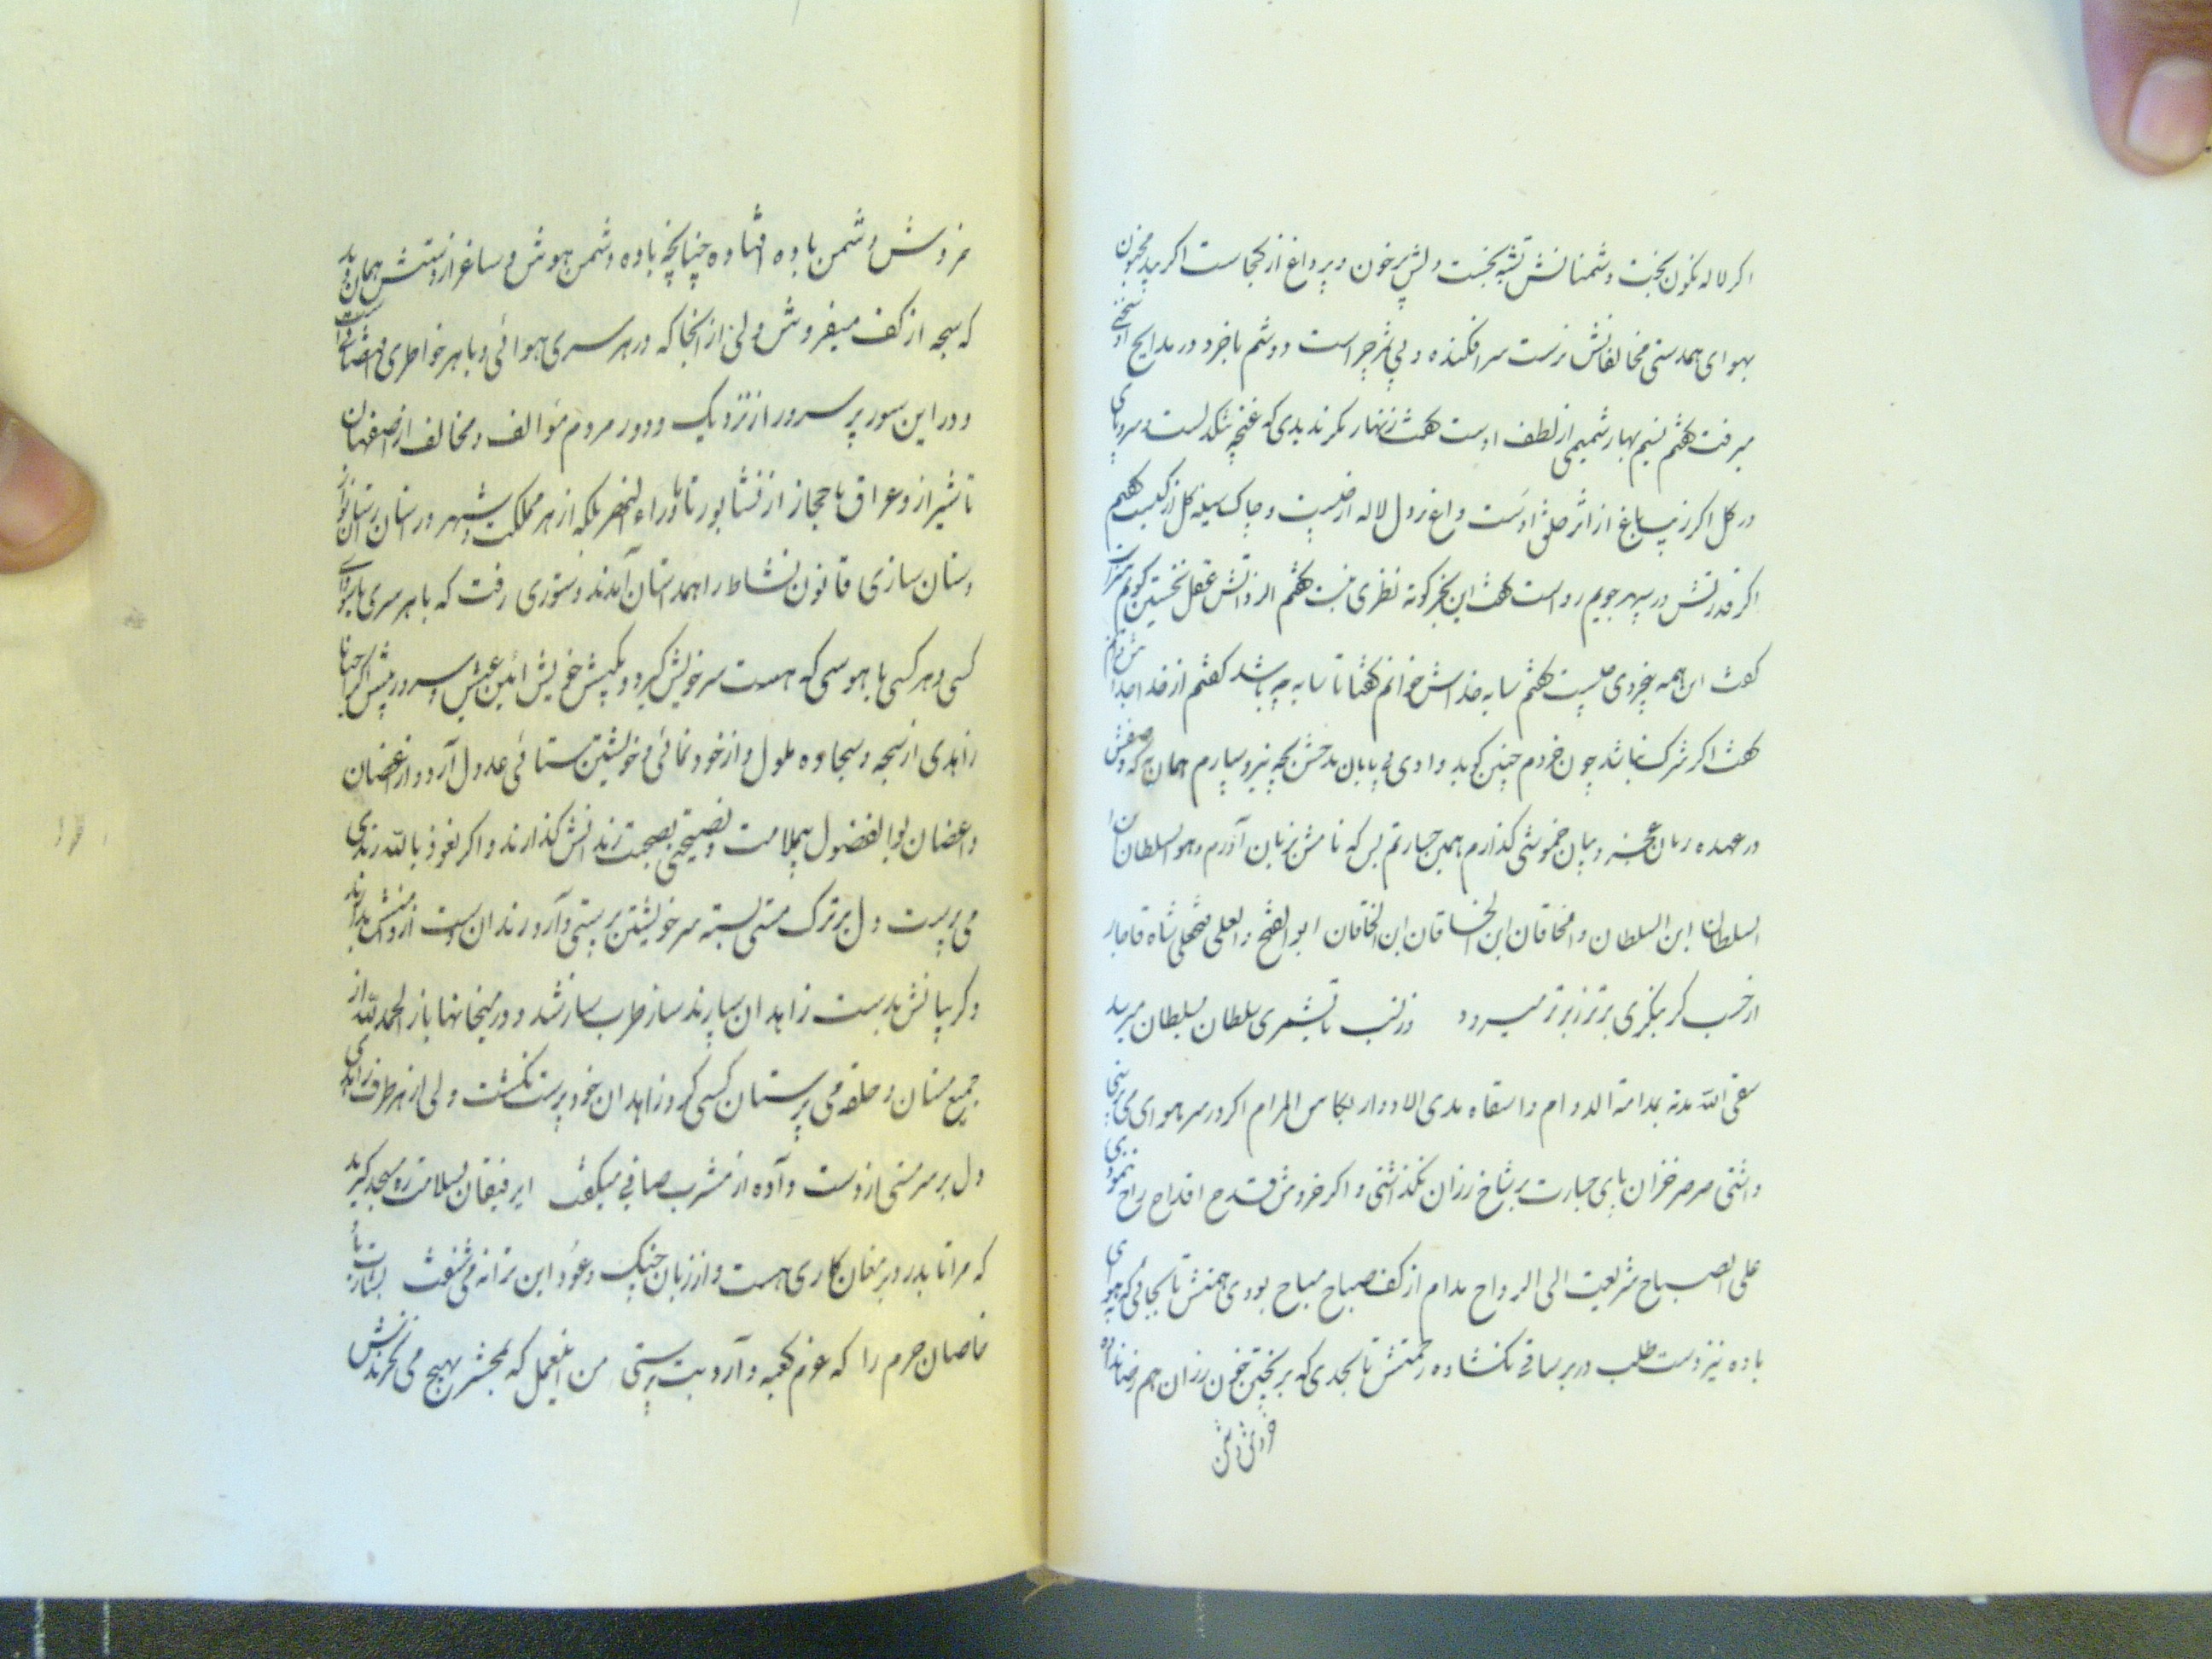 اگر لاله نگون بخت دشمنانش تشبه بجست دلش پرخون و پر داغ از کجاست اگر بید مجنون
بهوای همدستی مخالفانش نرست سرافکنده و بی ثمر چراست دوشم با خرد در مدایح او سخنی
میرفت گفتم نسیم بهار شمیمی از لطف اوست گفت زنهار مگر ندیدی که غنچه تنگدلست و سرو پای
در گل اگر زیب باغ از اثر خلق اوست داغ دل لاله از چیست و چاک سینه گل از کیست گفتم
اگر قدرتش در سپهر جویم رواست گفت این بجز کوته نظری نیست گفتم از دانش عقل نخستین گویم
گفت این همه بیخردی چیست گفتم سایه خداش خوانم گفتا تا سایه چه باشد گفتم از خدا جدا
گفت اگر شرک نباشد چون خردم چنین گوید وادی بی پایان مدحش بچه نیرو سپارم همان به که وصفش
در عهده زبان عجز و بیان خموشی گذارم همین جسارتم بس که نامش بزبان آورم و هو السلطان
السلطان ابن السلطان و الخاقان ابن الخاقان ابن الخاقان ابو الفتح و العلی فتحعلی شاه قاجار
از حسب گر بنگری برتر ز برتر میرود وز نسب تا بشمری سلطان بسلطان میرسد
سقی الله مدته بمدامة الدوام و اسقاه مدی الادوار بکاس المرام اگر در سر هوای می پرستی
داشتی صرصر خزان پای جسارت بر شاخ رزان نگذاشتی و اگر خروش قدح اقداح راح نمودی
علی الصباح شریعت الی الرواح مدام از کف صباح مباح بودی همتش تا بجائی که جویای
باده نیز دست طلب در بر ساقی نگشاده رحمتش تا بحدی که بریختن خون رزان هم رضا نداده
خروش دشمن
خروش دشمن باده افتاده چنانچه باده دشمن هوش و ساغر از دستش همان دید
که سبحه از کف میفروش ولی از آنجا که در هر سری هوائی و با هر خاطری
و در این سور پر سرور از نزدیک و دور مردم مؤالف و مخالف از اصفهان
تا شیراز و عراق تا حجاز از نشابور تا ماوراء النهر بلکه از هر مملکت و شهر
دستان سازی قانون نشاط را همداستان آمدند دستوری رفت که با هر سری
کسی و هر کسی با هوسی که هست سر خویش گیرد و بکیش خویش آئین عیش و سرور پیش اگر احیانا
زاهدی از سبحه و سجاده ملول و از خودنمائی و خویشتن ستائی عدول آرد و از
بوالفضول بملامت و نصیحتی بصحبت رندانش گذارند و اگر نعوذ بالله رندی
می پرست دل بر ترک مستی بسته سر خویشتن پرستی دارد رندان دست از دامنش بدارند
و گریبانش بدست زاهدان سپارند ساز طرب ساز شد و در میخانها باز الحمد لله از
جمیع مستان و حلقه می پرستان کسی گرد زاهدان خودپرست نگشت ولی از هر طرف زاهدی
دل بر سر مستی از دست داده از مشرب صافی میگفت ای رفیقان بسلامت ره مسجد گیرید
که مرا تا بدر دیر مغان کاری هست و از زبان چنگ و عود این ترانه می شنفت بشارت باد
خاصان حرم را که عزم کعبه دارد بت پرستی من این عمل که بمحشر بهیچ می نخرندش